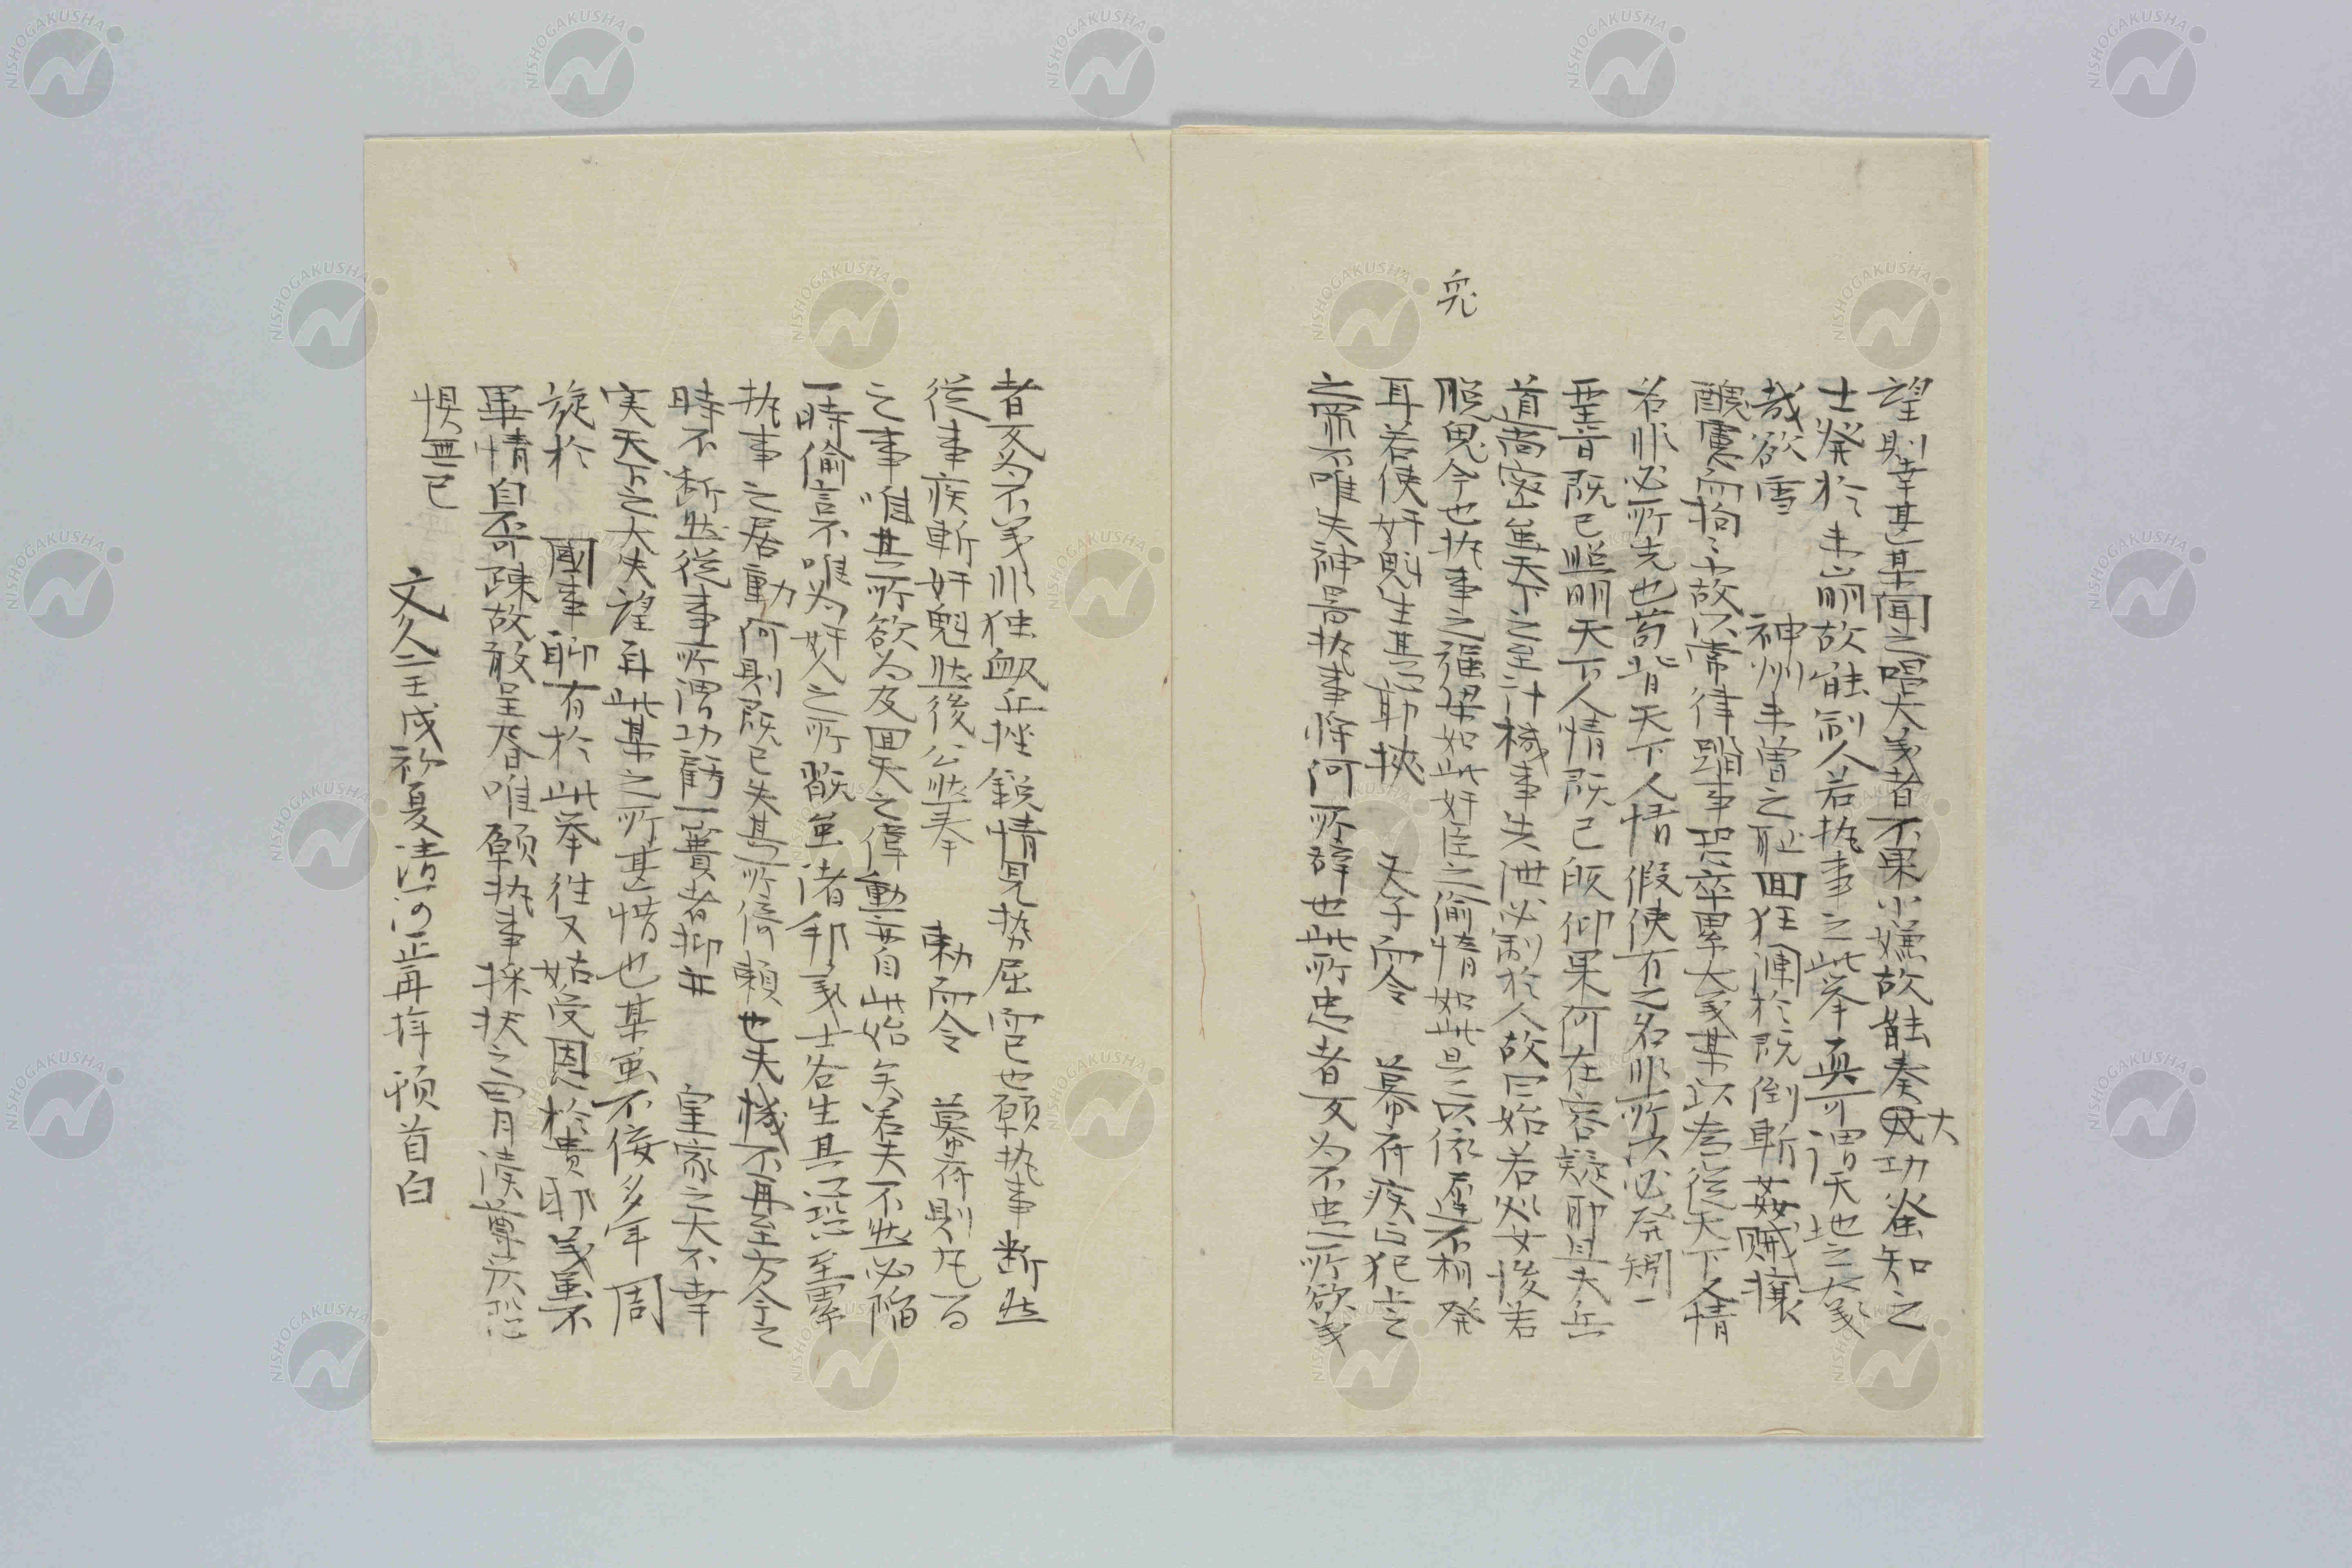 望則幸甚某聞之唱大義者不果小嫌故能奏大功蚤知之
士発於未崩故能制人若執事之此挙真可謂天地之大義
哉欲雪 神州未曽之耻回狂瀾於既倒斬姦賊攘
醜虜而拘々故以常律踏事恐卒累大義某以為従天下人情
名非必所先也苟背天下人情假使有之名非所以必発矧一
聖旨既已照明天下人情既已皈仰果何在容疑耶且夫兵
道尚密無天下之至計機事失泄必制於人故曰始若処女後若
脱兎今也執事之強梁如此奸臣之偷情如此旦々以依遷不相発
耳若使奸魁生其恐耶挾 天子而令 幕府疾与犯上之
之衆不唯失神器執事将何所辞也此所忠者又為不忠之所欲義
者又為不義非独衂兵挫鋭情見勢屈而已也願執事断然
従事疾斬奸魁然後公然奉 勅而令 幕府則凡百
之事唯其所欲為及回天之偉動亦自此始矣若夫不然必陥
一時偷言不唯為奸人之所翫虽諸邦義士各生其恐至累
執事之居動何則既已失其所倚頼也夫機不再至方今之
時不断然従事所謂功虧一簣者抑亦 皇家之大不幸
実天下之大失望耳此某之所甚惜也某虽不侫多年周
旋於 國事聊有於此挙往又姑受恩於貴邸義虽不
畢情自不可疎故敢呈春唯願執事採状之冒涜尊厳恐
惧無已
文久二壬戌初夏清河正再拝頓首白
兎
NISHOGAKUSHA